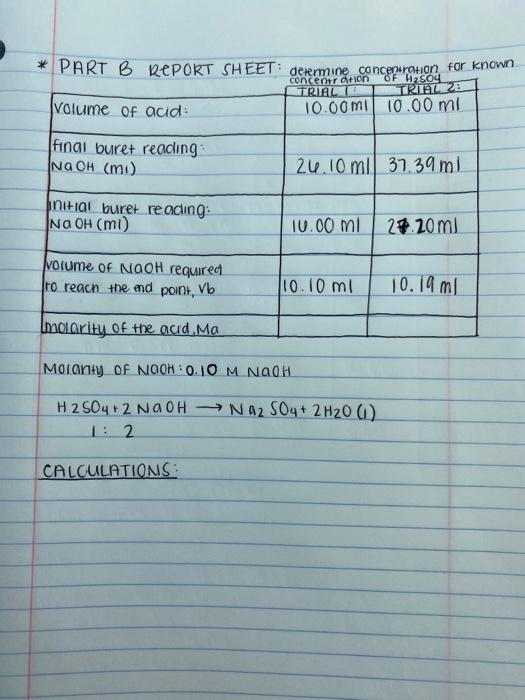 * PART B REPORT SHEET: determine concentration for known
concentration of H2SO4
TRIAL 1: TRIAL 2:
volume of acid: 10.00 ml 10.00 ml
final buret reading:
NaOH (ml) 26.10 ml 37.39 ml
initial buret reading:
NaOH (ml) 16.00 ml 27.20 ml
volume of NaOH required
to reach the end point, Vb 10.10 ml 10.19 ml
molarity of the acid, Ma
Molarity of NaOH: 0.10 M NaOH
H2SO4 + 2 NaOH → Na2SO4 + 2H2O (l)
1 : 2
CALCULATIONS: